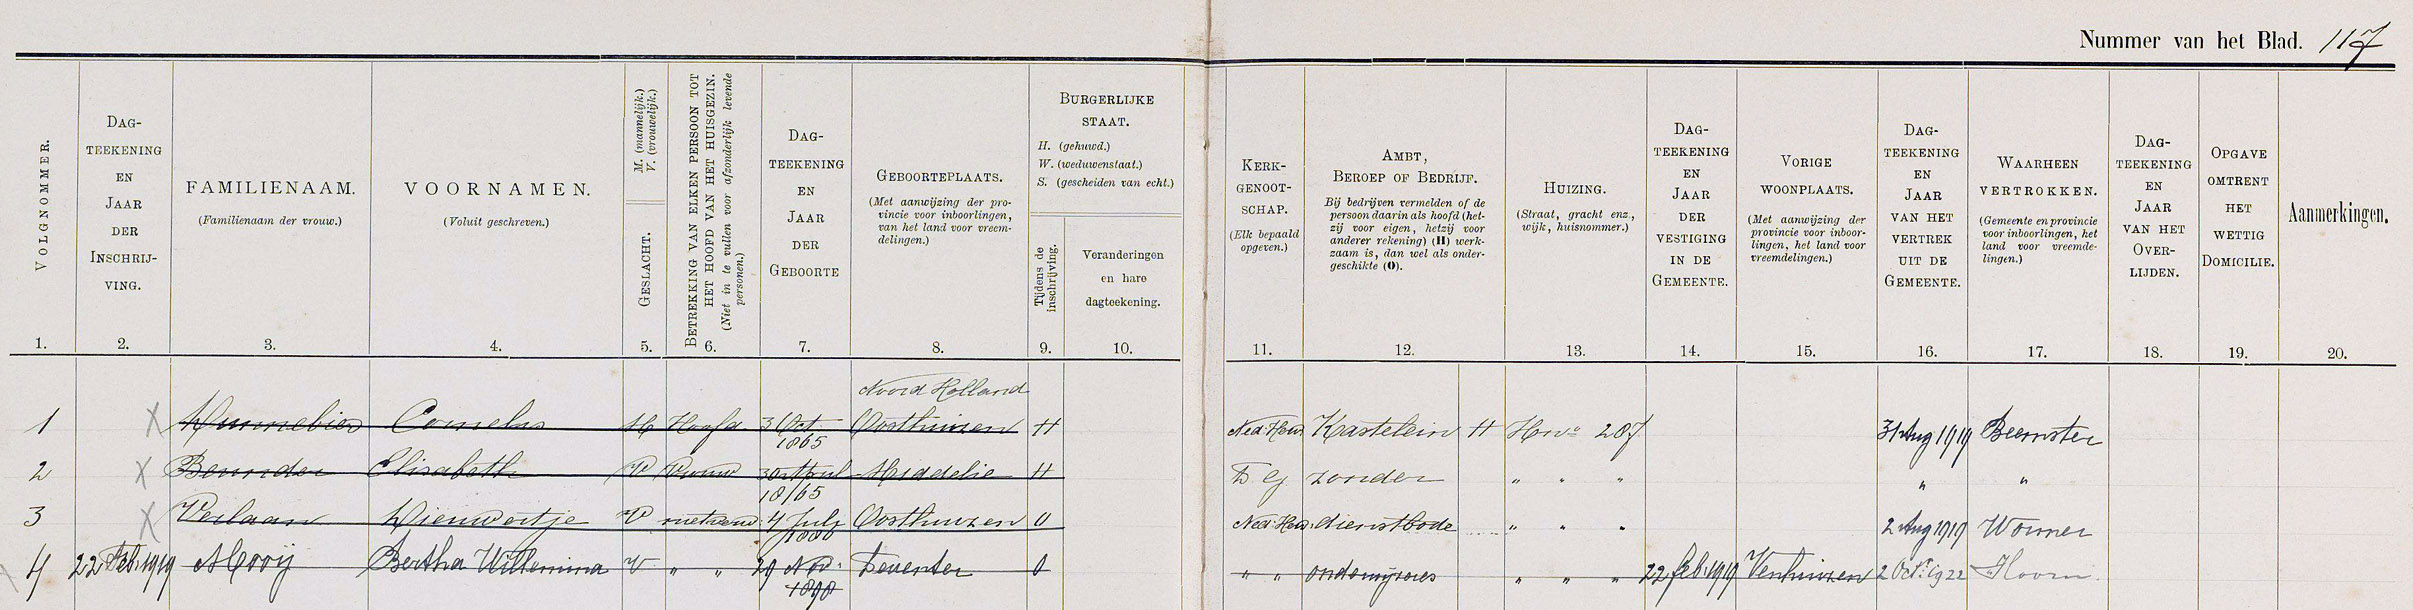 Nummer van het Blad. 117
VOLGNOMMER.
DAG-
TEEKENING
EN
JAAR
DER
INSCHRIJ-
VING.
FAMILIENAAM.
(Familienaam der vrouw.)
VOORNAMEN.
(Voluit geschreven.)
GESLACHT.
M. (mannelijk.)
V. (vrouwelijk.)
BETREKKING VAN ELKEN PERSOON TOT
HET HOOFD VAN HET HUISGEZIN.
(Niet in te vullen voor afzonderlijk levende
personen.)
DAG-
TEEKENING
EN
JAAR
DER
GEBOORTE
GEBOORTEPLAATS.
(Met aanwijzing der pro-
vincie voor inboorlingen,
van het land voor vreem-
delingen.)
BURGERLIJKE
STAAT.
H. (gehuwd.)
W. (weduwenstaat.)
S. (gescheiden van echt.)
Tijdens de
inschrijving.
Veranderingen
en hare
dagteekening.
KERK-
GENOOT-
SCHAP.
(Elk bepaald
opgeven.)
AMBT,
BEROEP OF BEDRIJF.
Bij bedrijven vermelden of de
persoon daarin als hoofd (het-
zij voor eigen, hetzij voor
anderer rekening) (H) werk-
zaam is, dan wel als onder-
geschikte (O).
HUIZING.
(Straat, gracht enz.,
wijk, huisnommer.)
DAG-
TEEKENING
EN
JAAR
DER
VESTIGING
IN DE
GEMEENTE.
VORIGE
WOONPLAATS.
(Met aanwijzing der
provincie voor inboor-
lingen, het land voor
vreemdelingen.)
DAG-
TEEKENING
EN
JAAR
VAN HET
VERTREK
UIT DE
GEMEENTE.
WAARHEEN
VERTROKKEN.
(Gemeente en provincie
voor inboorlingen, het
land voor vreemde-
lingen.)
DAG-
TEEKENING
EN
JAAR
VAN HET
OVER-
LIJDEN.
OPGAVE
OMTRENT
HET
WETTIG
DOMICILIE.
Aanmerkingen.
1. 2. 3. 4. 5. 6. 7. 8. 9. 10. 11. 12. 13. 14. 15. 16. 17. 18. 19. 20.
Noord Holland
1 Cornelis M Hoofd 3 Oct Oosthuizen H Ned: Herv. Kastelein H 207 31 Aug 1919 Beemster
1865
2 Elisabeth V Vrouw 30 April Middelie H D G zonder " " " " "
1865
3 Verlaan V 4 July Oosthuizen O Ned: Herv. dienstbode " " " 2 Aug 1919 Wormer
4 22 Feb. 1919 Mooij Bertha Willemina V " " 29 Nov. Deventer O " " onderwijzeres " " " 22 feb. 1919 Venhuizen 2 Oct. 1922 Hoorn
1898